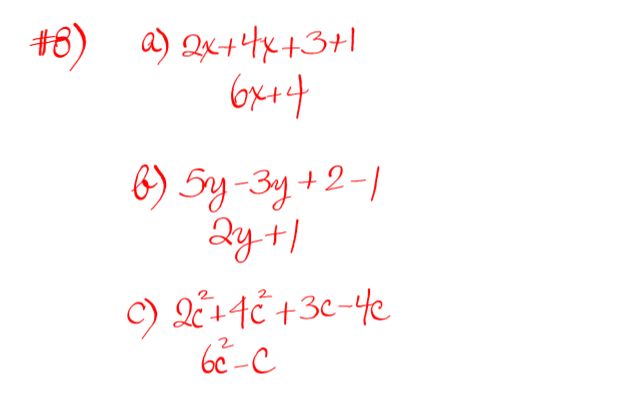 #8) a) 2x+4x+3+1
6x+4
b) 5y-3y+2-1
2y+1
c) 2c²+4c²+3c-4c
6c²-c